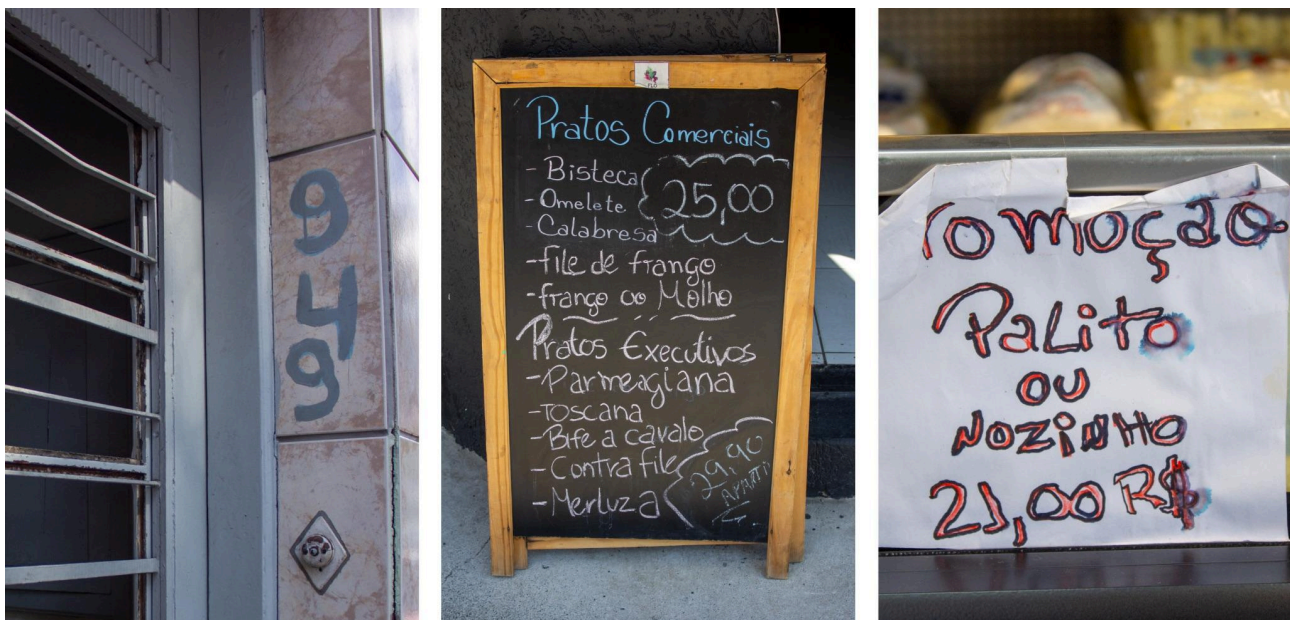 949
FLÔ
Pratos Comerciais
- Bisteca
25,00
- Omelete
- Calabresa
- file de frango
- frango ao Molho
Pratos Executivos
- Parmeagiana
- Toscana
- Bife a cavalo
29,90
- Contra file
- Merluza
romoção
Palito
ou
Nozinho
21,00 R$